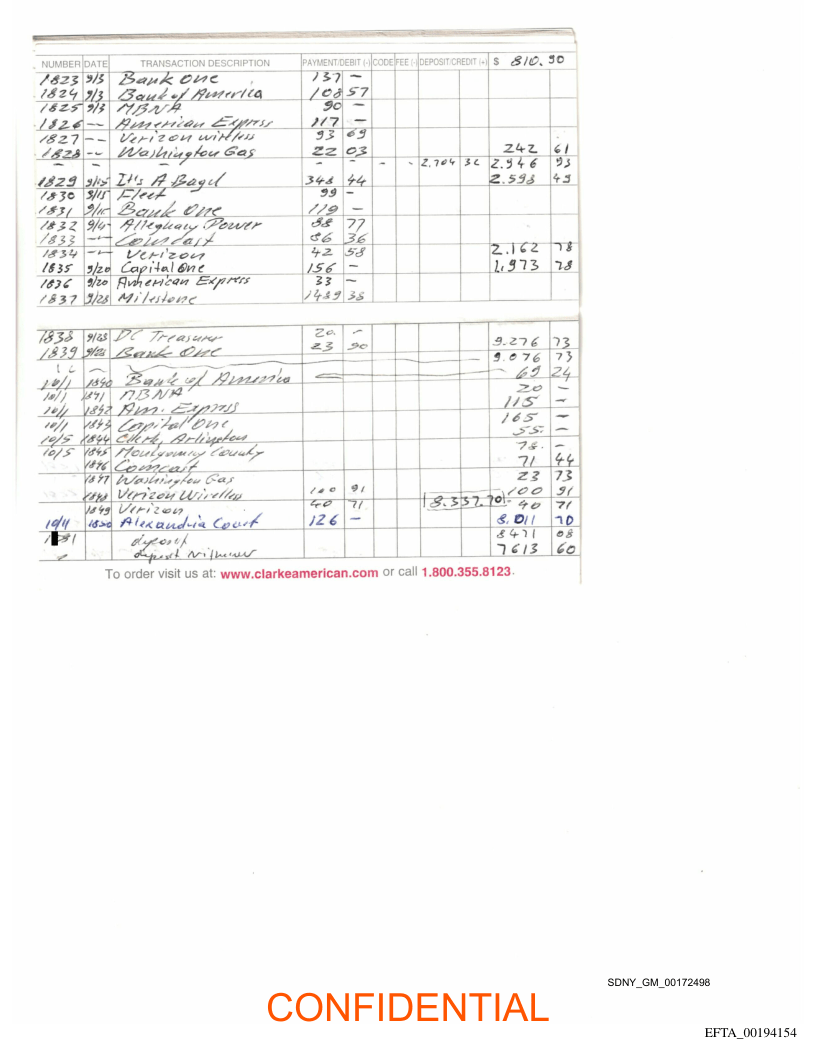 NUMBER DATE TRANSACTION DESCRIPTION PAYMENT/DEBIT (-) CODE FEE (-) DEPOSIT/CREDIT (+) $ 810.90
1823 9/3 Bank One 137 -
1824 9/3 Bank of America 108 57
1825 9/3 MBNA 90 -
1826 -- American Express 117 -
1827 -- Verizon wireless 93 69
1828 -- Washington Gas 22 03 242 61
- - - - - - - 2.704 32 2.946 93
1829 9/15 It's A Bagel 348 44 2.598 49
1830 9/15 Fleet 99 -
1831 Bank One 119 -
1832 Alleghany Power 88 77
1833 -- Comcast 86 36
1834 -- Verizon 42 58 2.162 78
1835 9/20 Capital One 156 - 1.973 78
1836 9/20 American Express 33 -
1837 9/28 Milestone 1489 38
1838 9/28 DC Treasurer 20. - 9.276 73
1839 9/28 Bank One 23 90 9.076 73
10/1 1840 Bank of America 69 24
10/1 1841 MBNA 20 -
10/1 1842 Am. Express 115 -
10/1 1843 Capital One 165 -
10/5 1844 Clerk, Arlington 55. -
10/5 1845 Montgomery County 78. -
1846 Comcast 71 44
1847 Washington Gas 23 73
1848 Verizon Wireless 100 91 100 91
1849 Verizon 40 71 8.337.70 40 71
10/11 1850 Alexandria Court 126 - 8.011 70
deposit 8471 08
deposit 7613 60
To order visit us at: www.clarkeamerican.com or call 1.800.355.8123.
SDNY_GM_00172498
CONFIDENTIAL
EFTA_00194154